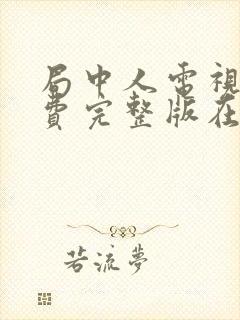 局中人電視
費完整版在
若流夢